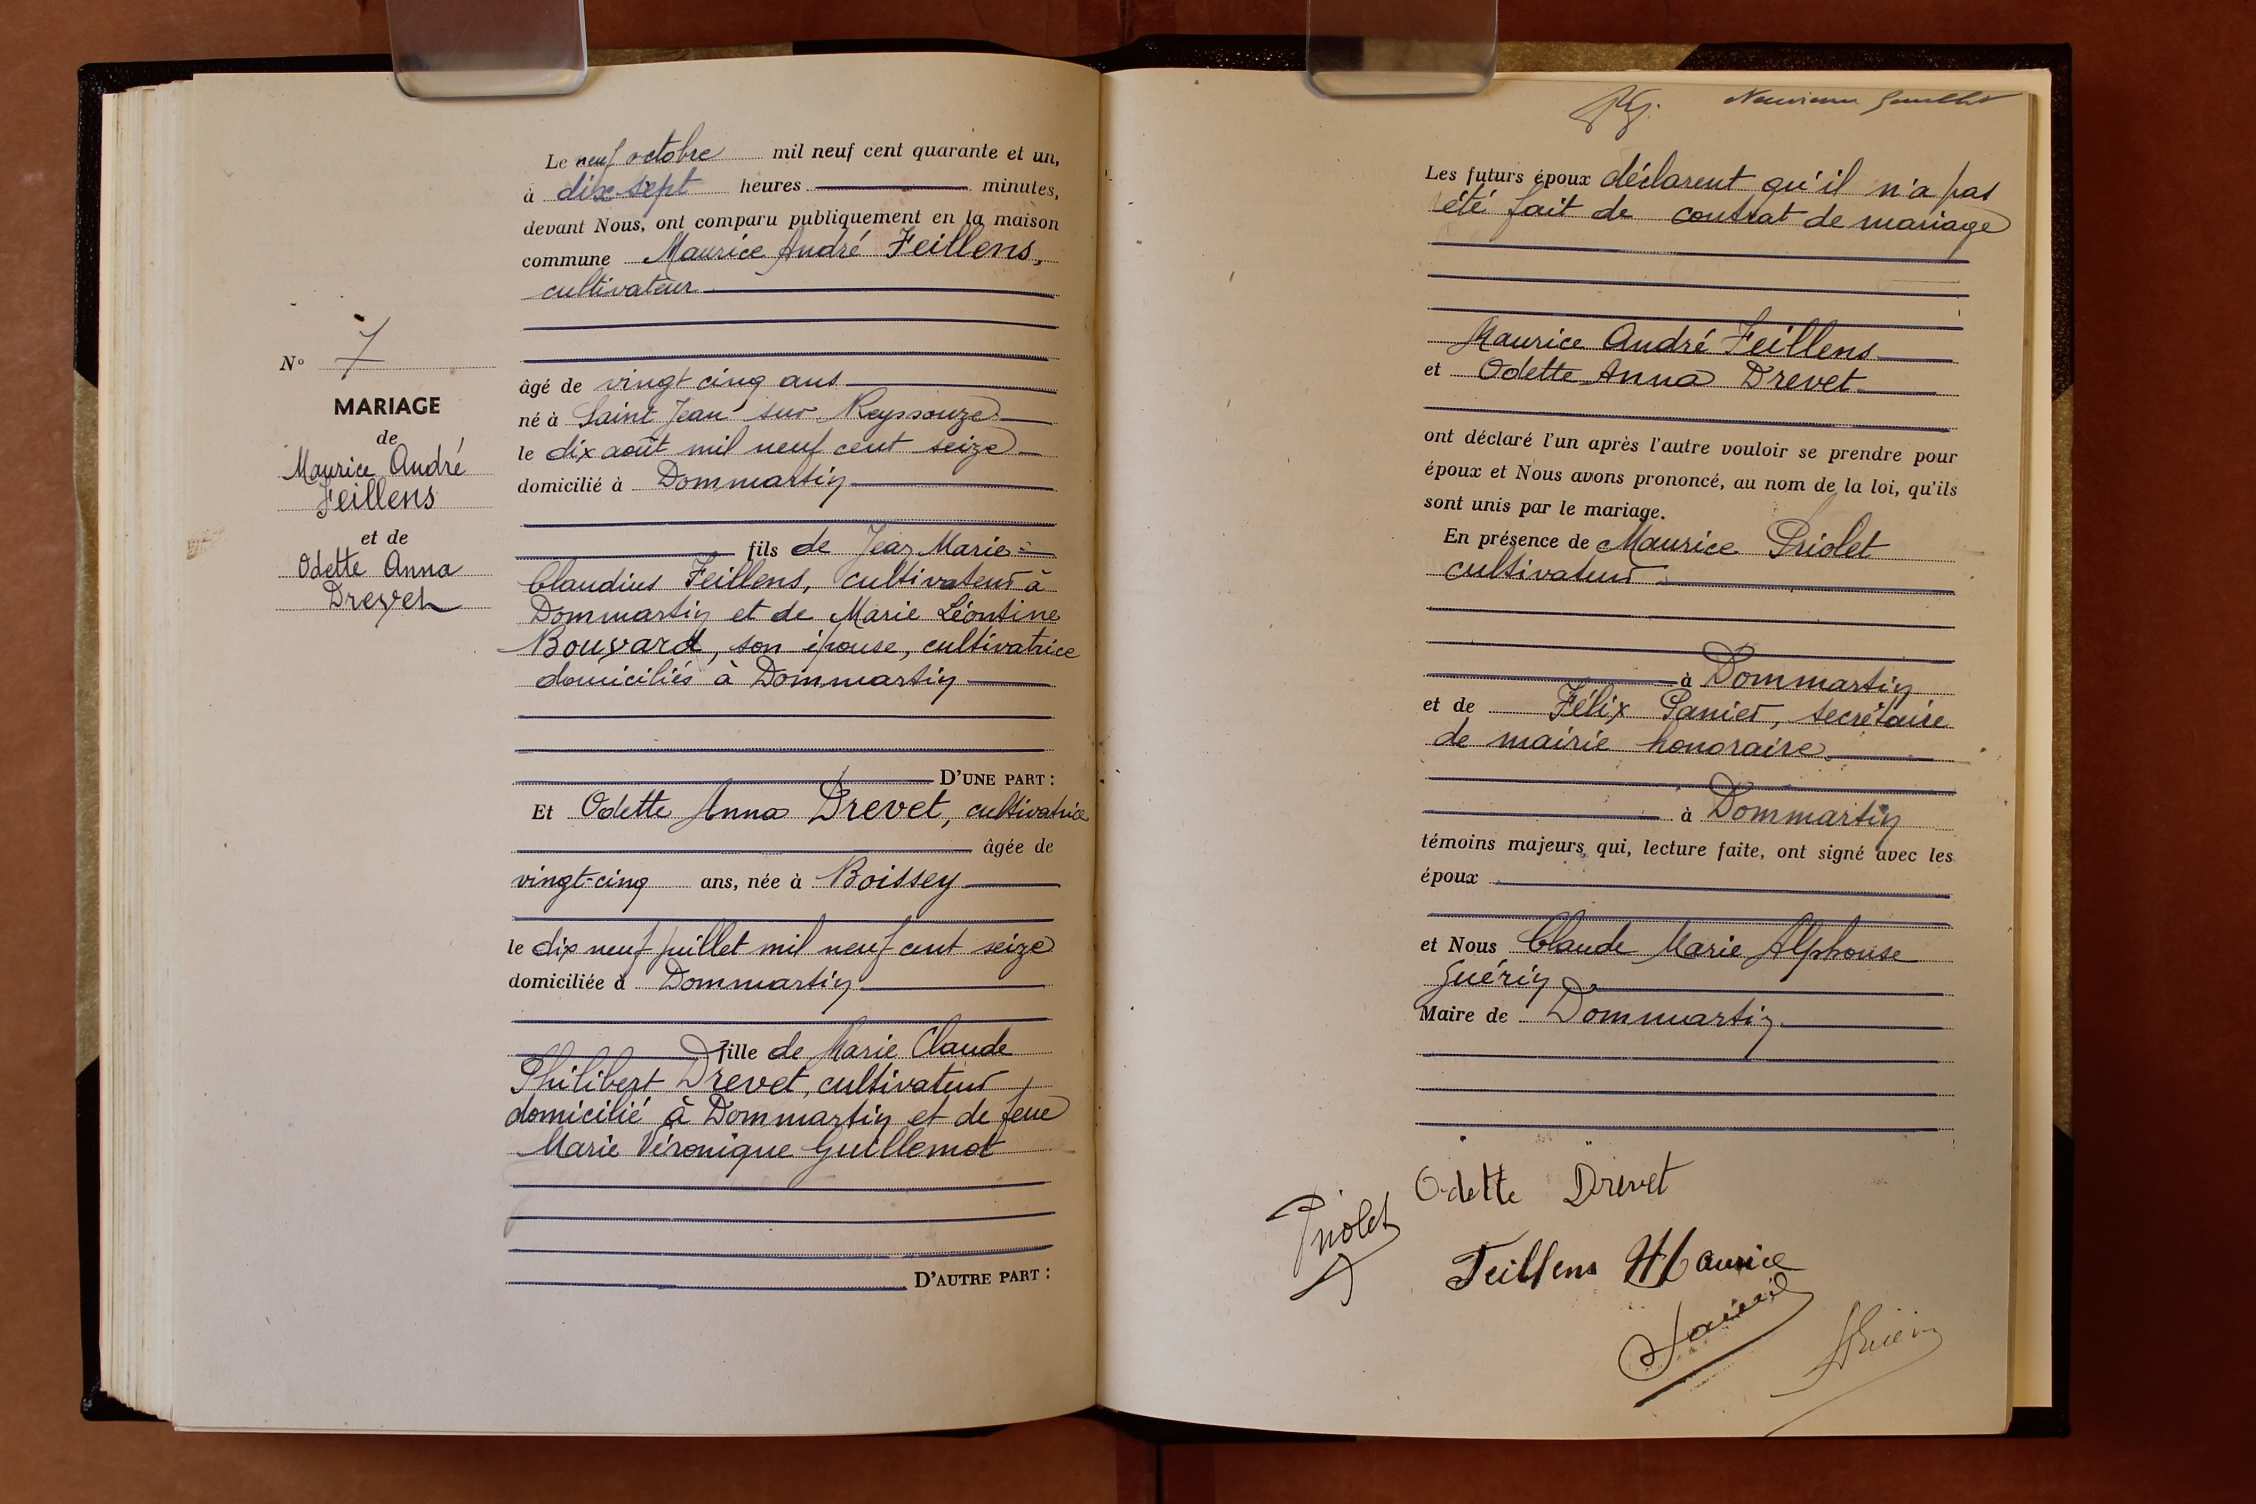 N° 7
MARIAGE
de
Maurice André
Feillens
et de
Odette Anna
Drevet
Le neuf octobre mil neuf cent quarante et un,
à dix sept heures minutes,
devant Nous, ont comparu publiquement en la maison
commune Maurice André Feillens,
cultivateur
âgé de vingt cinq ans
né à Saint Jean sur Reyssouze
le dix août mil neuf cent seize
domicilié à Dommartin
fils de Jean Marie
Claudius Feillens, cultivateur à
Dommartin et de Marie Léontine
Bouvard, son épouse, cultivatrice
domiciliés à Dommartin
D'UNE PART :
Et Odette Anna Drevet, cultivatrice
âgée de
vingt-cinq ans, née à Boissey
le dix neuf juillet mil neuf cent seize
domiciliée à Dommartin
fille de Marie Claude
Philibert Drevet, cultivateur
domicilié à Dommartin et de feue
Marie Véronique Guillemot
D'AUTRE PART :
Les futurs époux déclarent qu'il n'a pas
été fait de contrat de mariage
Maurice André Feillens
et Odette Anna Drevet
ont déclaré l'un après l'autre vouloir se prendre pour
époux et Nous avons prononcé, au nom de la loi, qu'ils
sont unis par le mariage.
En présence de Maurice Priolet
cultivateur
à Dommartin
et de Félix Panier, secrétaire
de mairie honoraire
à Dommartin
témoins majeurs qui, lecture faite, ont signé avec les
époux
et Nous Claude Marie Alphonse
Guérin
Maire de Dommartin
Odette Drevet
Priolet
Feillens Maurice
Guérin